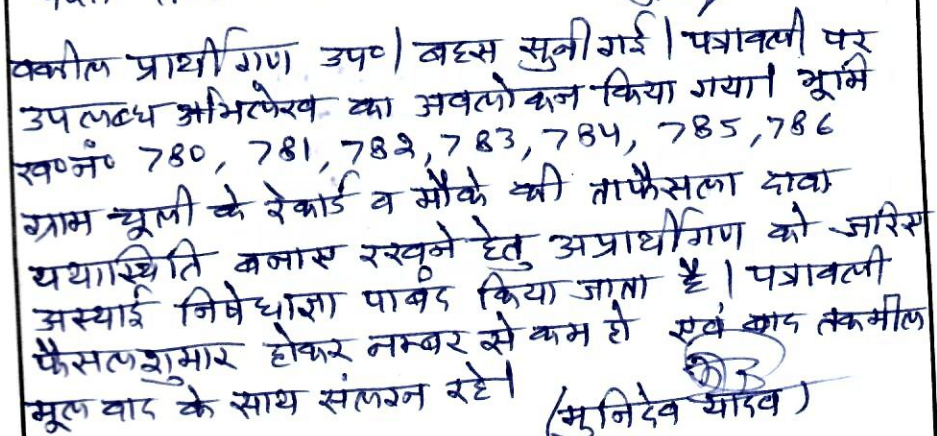 वकील प्रार्थीगण उप० | बहस सुनी गई | पत्रावली पर
उपलब्ध अभिलेख का अवलोकन किया गया | भूमि
ख०नं० 780, 781, 782, 783, 784, 785, 786
ग्राम चूली के रेकार्ड व मौके की ताफैसला दावा
यथास्थिति बनाए रखने हेतु अप्रार्थीगण को जरिए
अस्थाई निषेधाज्ञा पाबंद किया जाता है | पत्रावली
फैसलशुमार होकर नम्बर से कम हो एवं बाद तकमील
मूल वाद के साथ संलग्न रहे |
(मुनिदेव यादव)